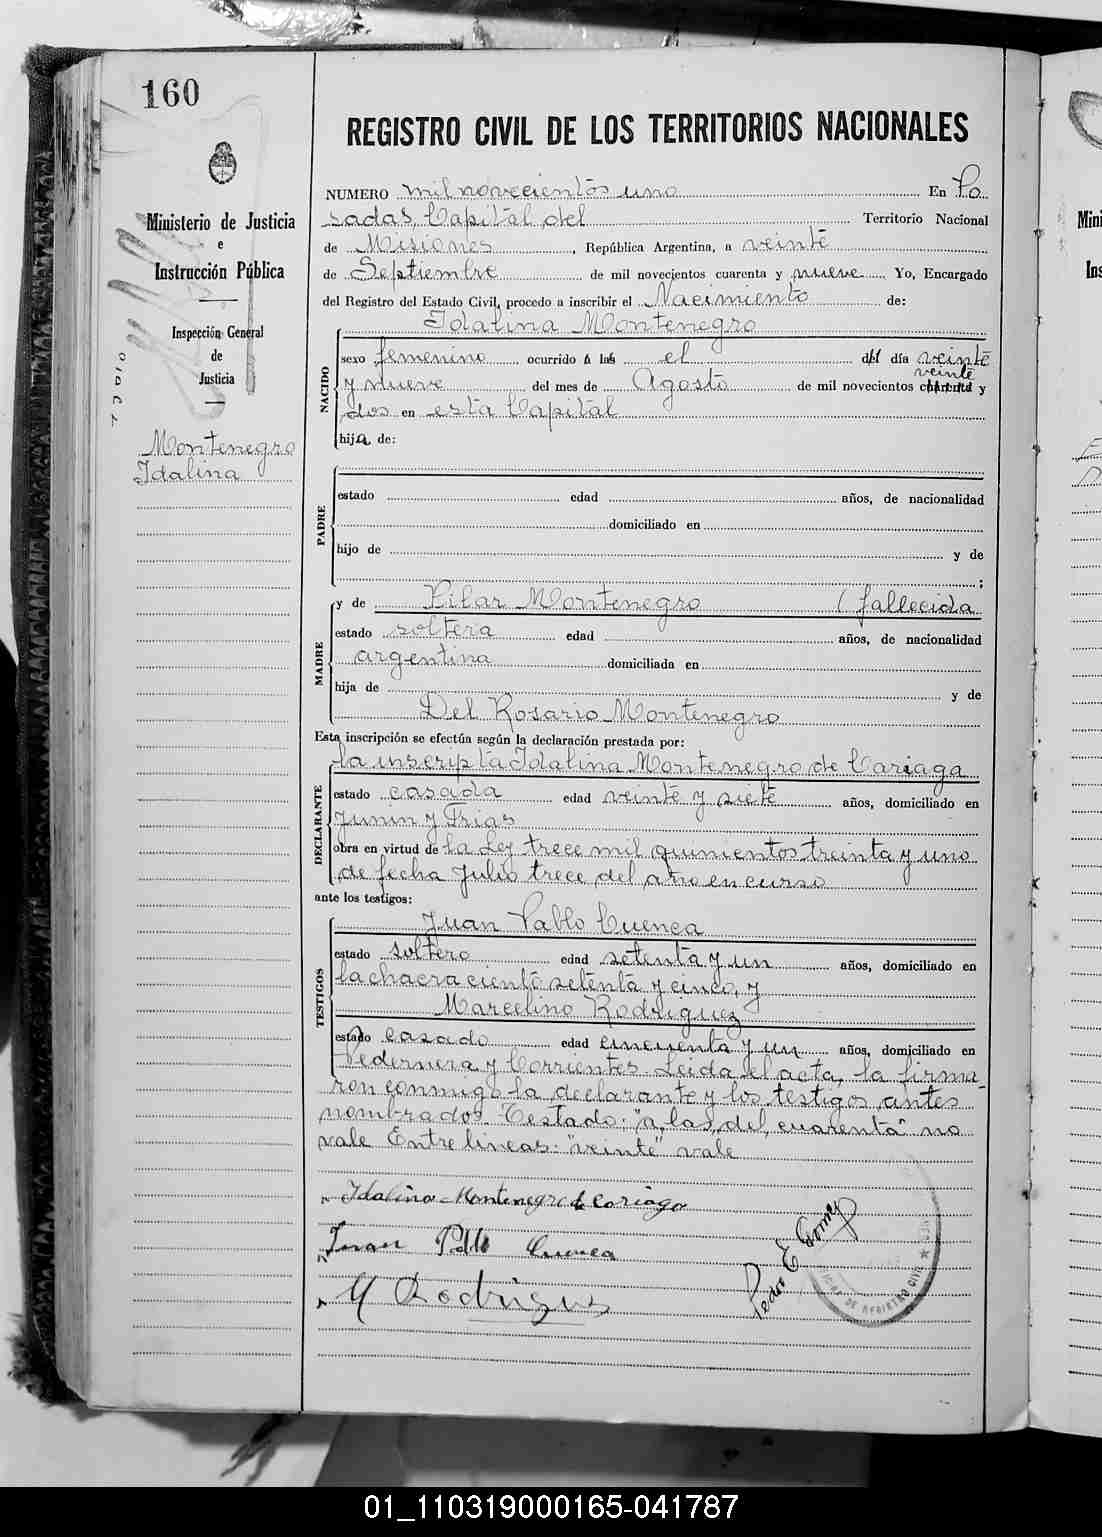 160
Ministerio de Justicia
e
Instrucción Pública
Inspección General
de
Justicia
Montenegro
Idalina
REGISTRO CIVIL DE LOS TERRITORIOS NACIONALES
NUMERO mil novecientos uno En Po
sadas, Capital del Territorio Nacional
de Misiones, República Argentina, a veinte
de Septiembre de mil novecientos cuarenta y nueve Yo, Encargado
del Registro del Estado Civil, procedo a inscribir el Nacimiento de:
NACIDO
Idalina Montenegro
sexo femenino ocurrido á las el del día veinte
veinte
y nueve del mes de Agosto de mil novecientos cuarenta y
dos en esta Capital
hija de:
PADRE
estado edad años, de nacionalidad
domiciliado en
hijo de y de
;
MADRE
y de Pilar Montenegro (fallecida
estado soltera edad años, de nacionalidad
argentina domiciliada en
hija de y de
Del Rosario Montenegro
Esta inscripción se efectúa según la declaración prestada por:
DECLARANTE
la inscripta Idalina Montenegro de Cariaga
estado casada edad veinte y siete años, domiciliado en
Junin y Frias
obra en virtud de la Ley trece mil quinientos treinta y uno
de fecha Julio trece del año en curso
ante los testigos:
TESTIGOS
Juan Pablo Cuenca
estado soltero edad setenta y un años, domiciliado en
la chacra ciento setenta y cinco, y
Marcelino Rodriguez
estado casado edad cincuenta y un años, domiciliado en
Pedernera y Corrientes. Leida el acta, la firma-
ron conmigo la declarante y los testigos antes
nombrados. Testado: "a las, del, cuarenta" no
vale Entre lineas: "veinte" vale
Idalina Montenegro de Cariaga
Juan Pablo Cuenca
M Rodrigues
Pedro E Gomez
DE REGISTRO CIVIL
01_110319000165-041787